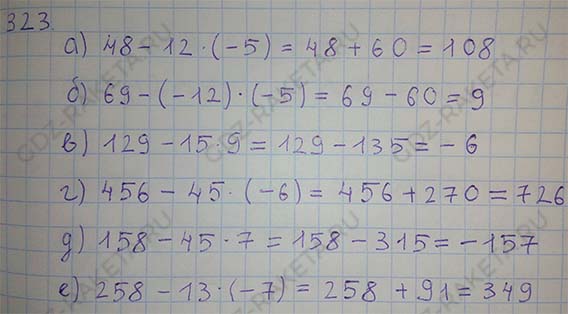 323.
а) 48 - 12 · (-5) = 48 + 60 = 108
б) 69 - (-12) · (-5) = 69 - 60 = 9
в) 129 - 15 · 9 = 129 - 135 = - 6
г) 456 - 45 · (-6) = 456 + 270 = 726
д) 158 - 45 · 7 = 158 - 315 = -157
е) 258 - 13 · (-7) = 258 + 91 = 349
GDZ-RAKETA.RU